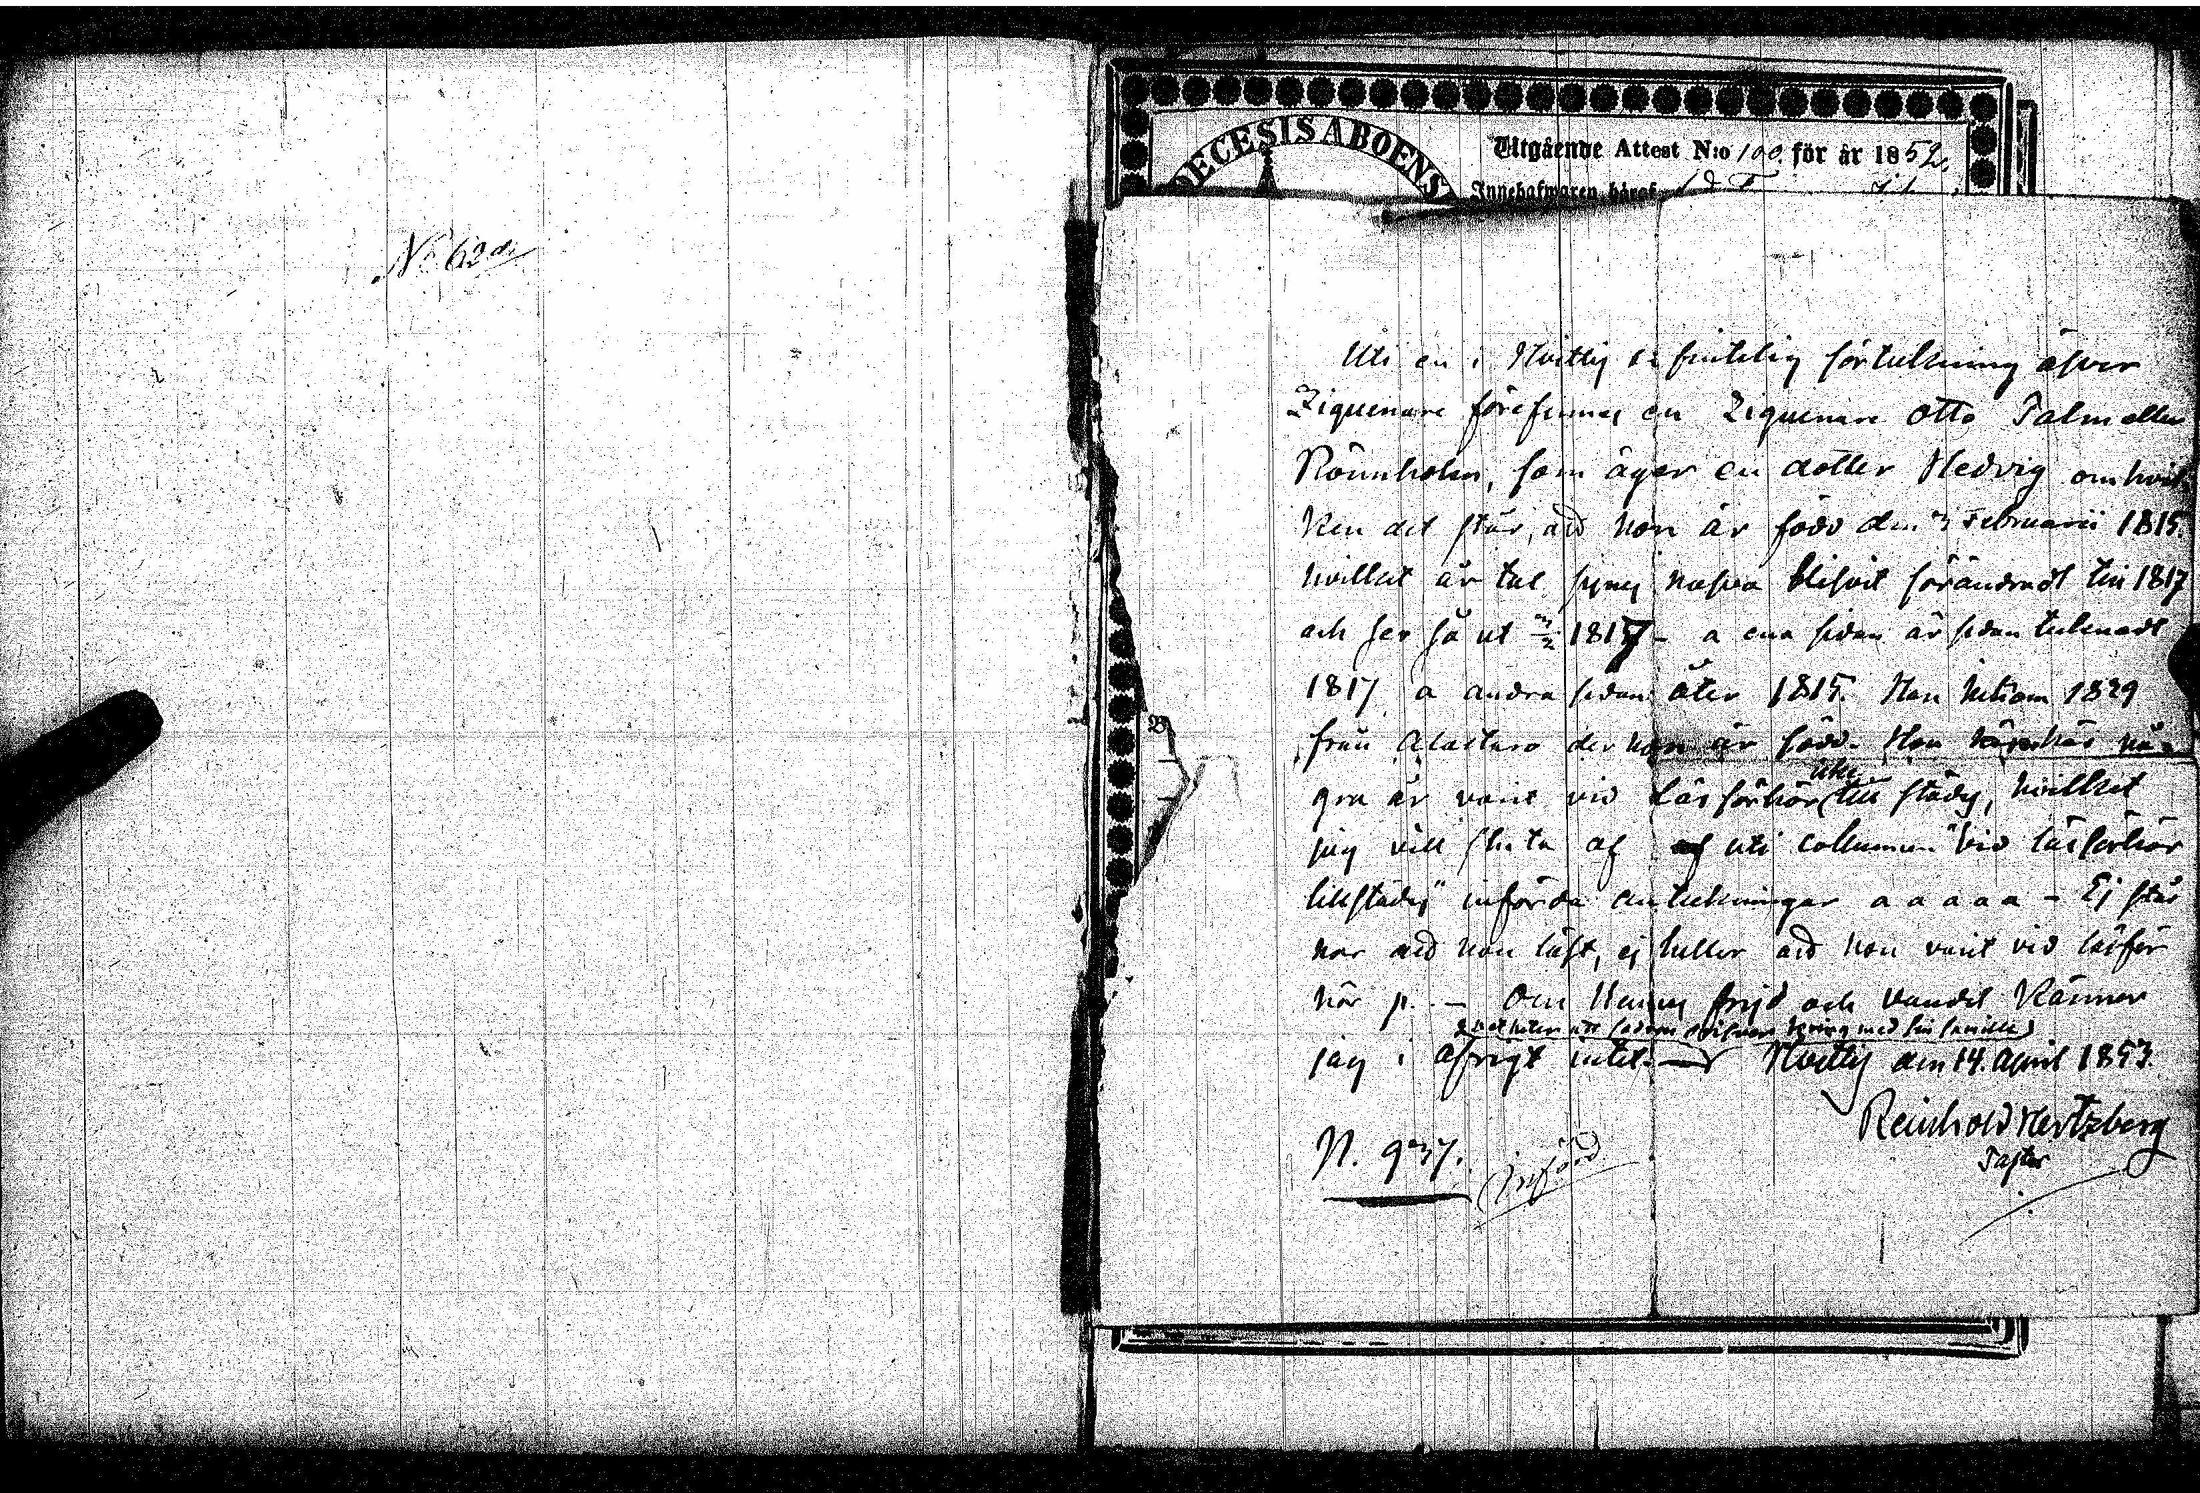 No 62 di
DECESIS ABOENS
Utgående Attest N:o 100. för år 1852.
Innehafwaren häraf
Uti en i Hvittis befintelig förtekning öfver
Ziguenare förefinnes en Ziguenare Otto Palm eller
Rönnholm, som äger en dotter Hedvig om hvil
ken det står, att hon är född den 3 Februarii 1815.
hvilket år tal synes hafva blifvit förändradt till 1817
och ser så ut 1817 - a ena sidan är sedan teknadt
1817 a andra sidan åter 1815. Hon inkom 1829
från Alastaro der hon är född. Hon har nå
gra år varit vid Läsförhör icke till städes, hvilket
jag vill sluta af uti collumnen "vid läsförhör
tillstädes" införda antekningar a a a a a - Ej står
här att hon läst, ej heller att hon varit vid läsför
hör p. - Om Hennes frejd och vandel känner
jag i öfrigt intet. Hvittis den 14. April 1853.
Reinhold Hertzberg
Pastor
N. 937.
(införd